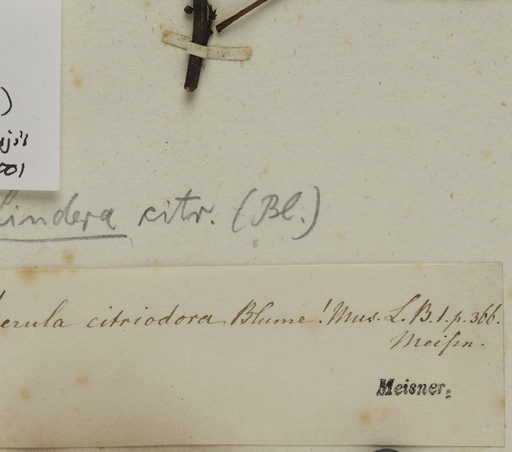 )
001
Lindera citr. (Bl.)
erula citriodora Blume! Mus. L. B. 1. p. 366.
Meiſsn.
Meisner.